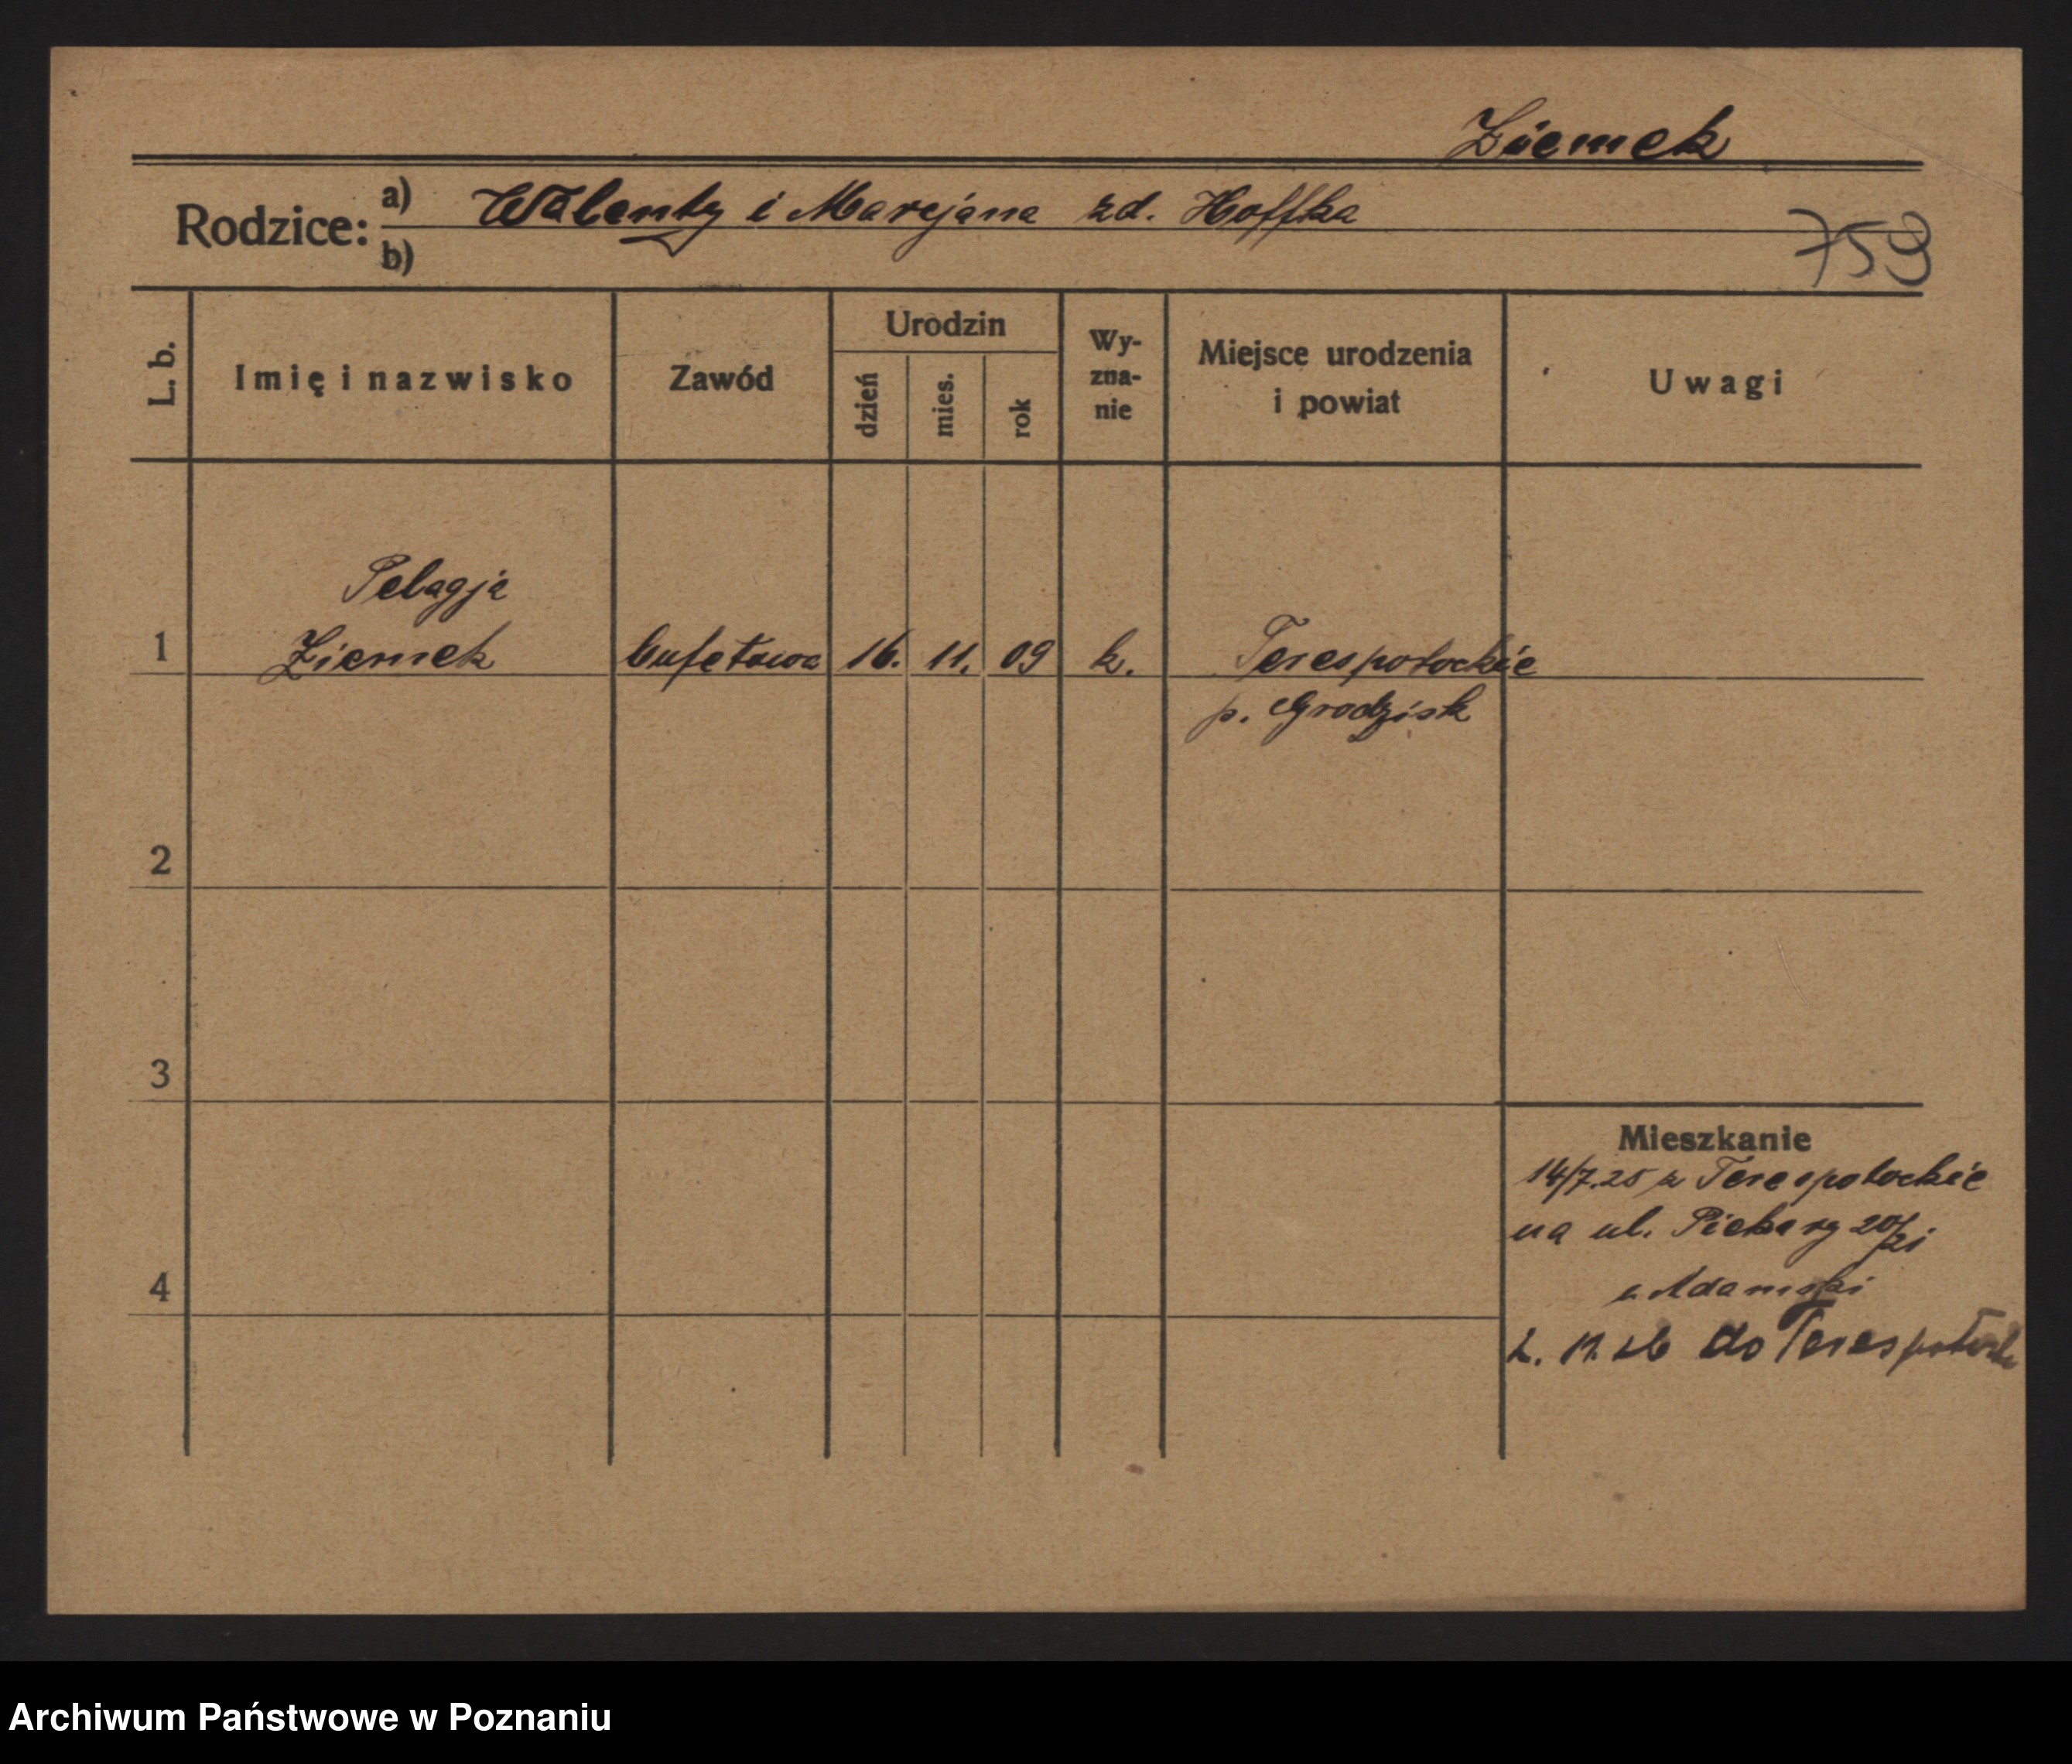 Ziemek
Rodzice: a) Walenty i Maryjana zd. Hoffka
b)
759
L. b.
Imię i nazwisko
Zawód
Urodzin
dzień
mies.
rok
Wy-
zna-
nie
Miejsce urodzenia
i powiat
Uwagi
Pelagja
1 Ziemek bufetowa 16. 11. 09 k. Terespotockie
p. Grodzisk
2
3
4
Mieszkanie
14/7.25 z Terespotockie
na ul. Piekary 20/21
u Adamski
do Terespotock
Archiwum Państwowe w Poznaniu